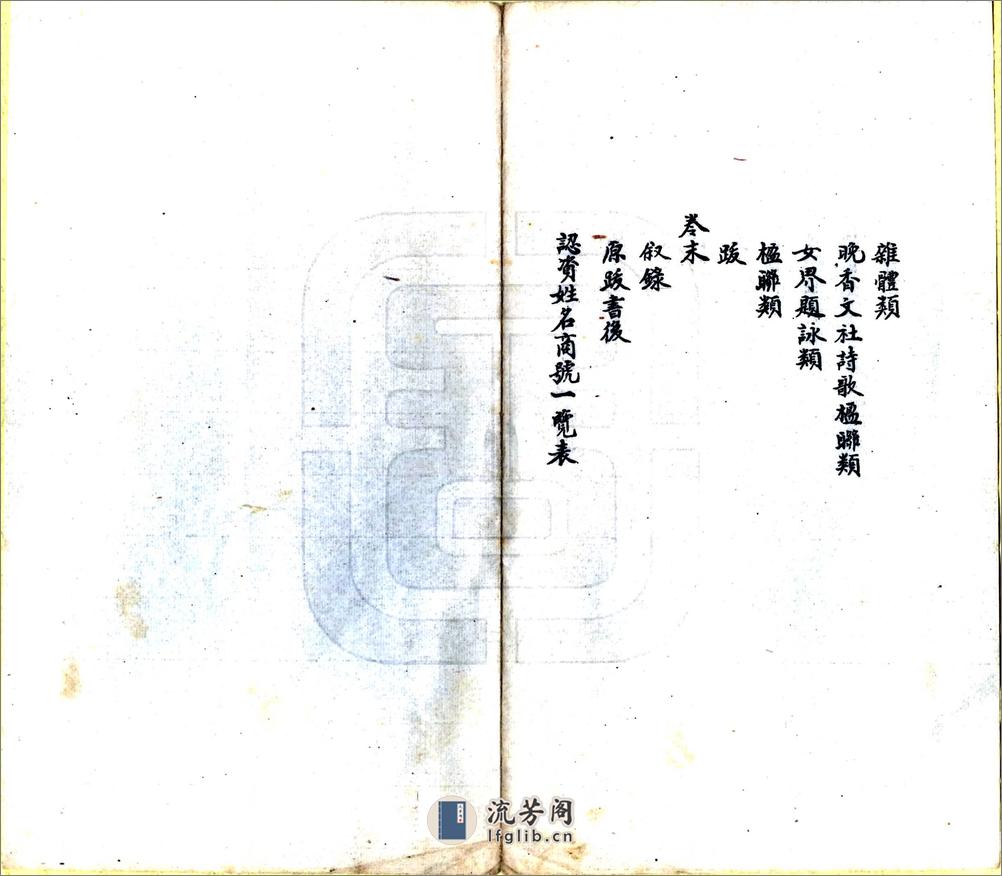 雜體類
晚香文社詩歌楹聯類
女界題詠類
楹聯類
跋
卷末
敘錄
原跋書後
認資姓名商號一覽表
流芳阁
lfglib.cn